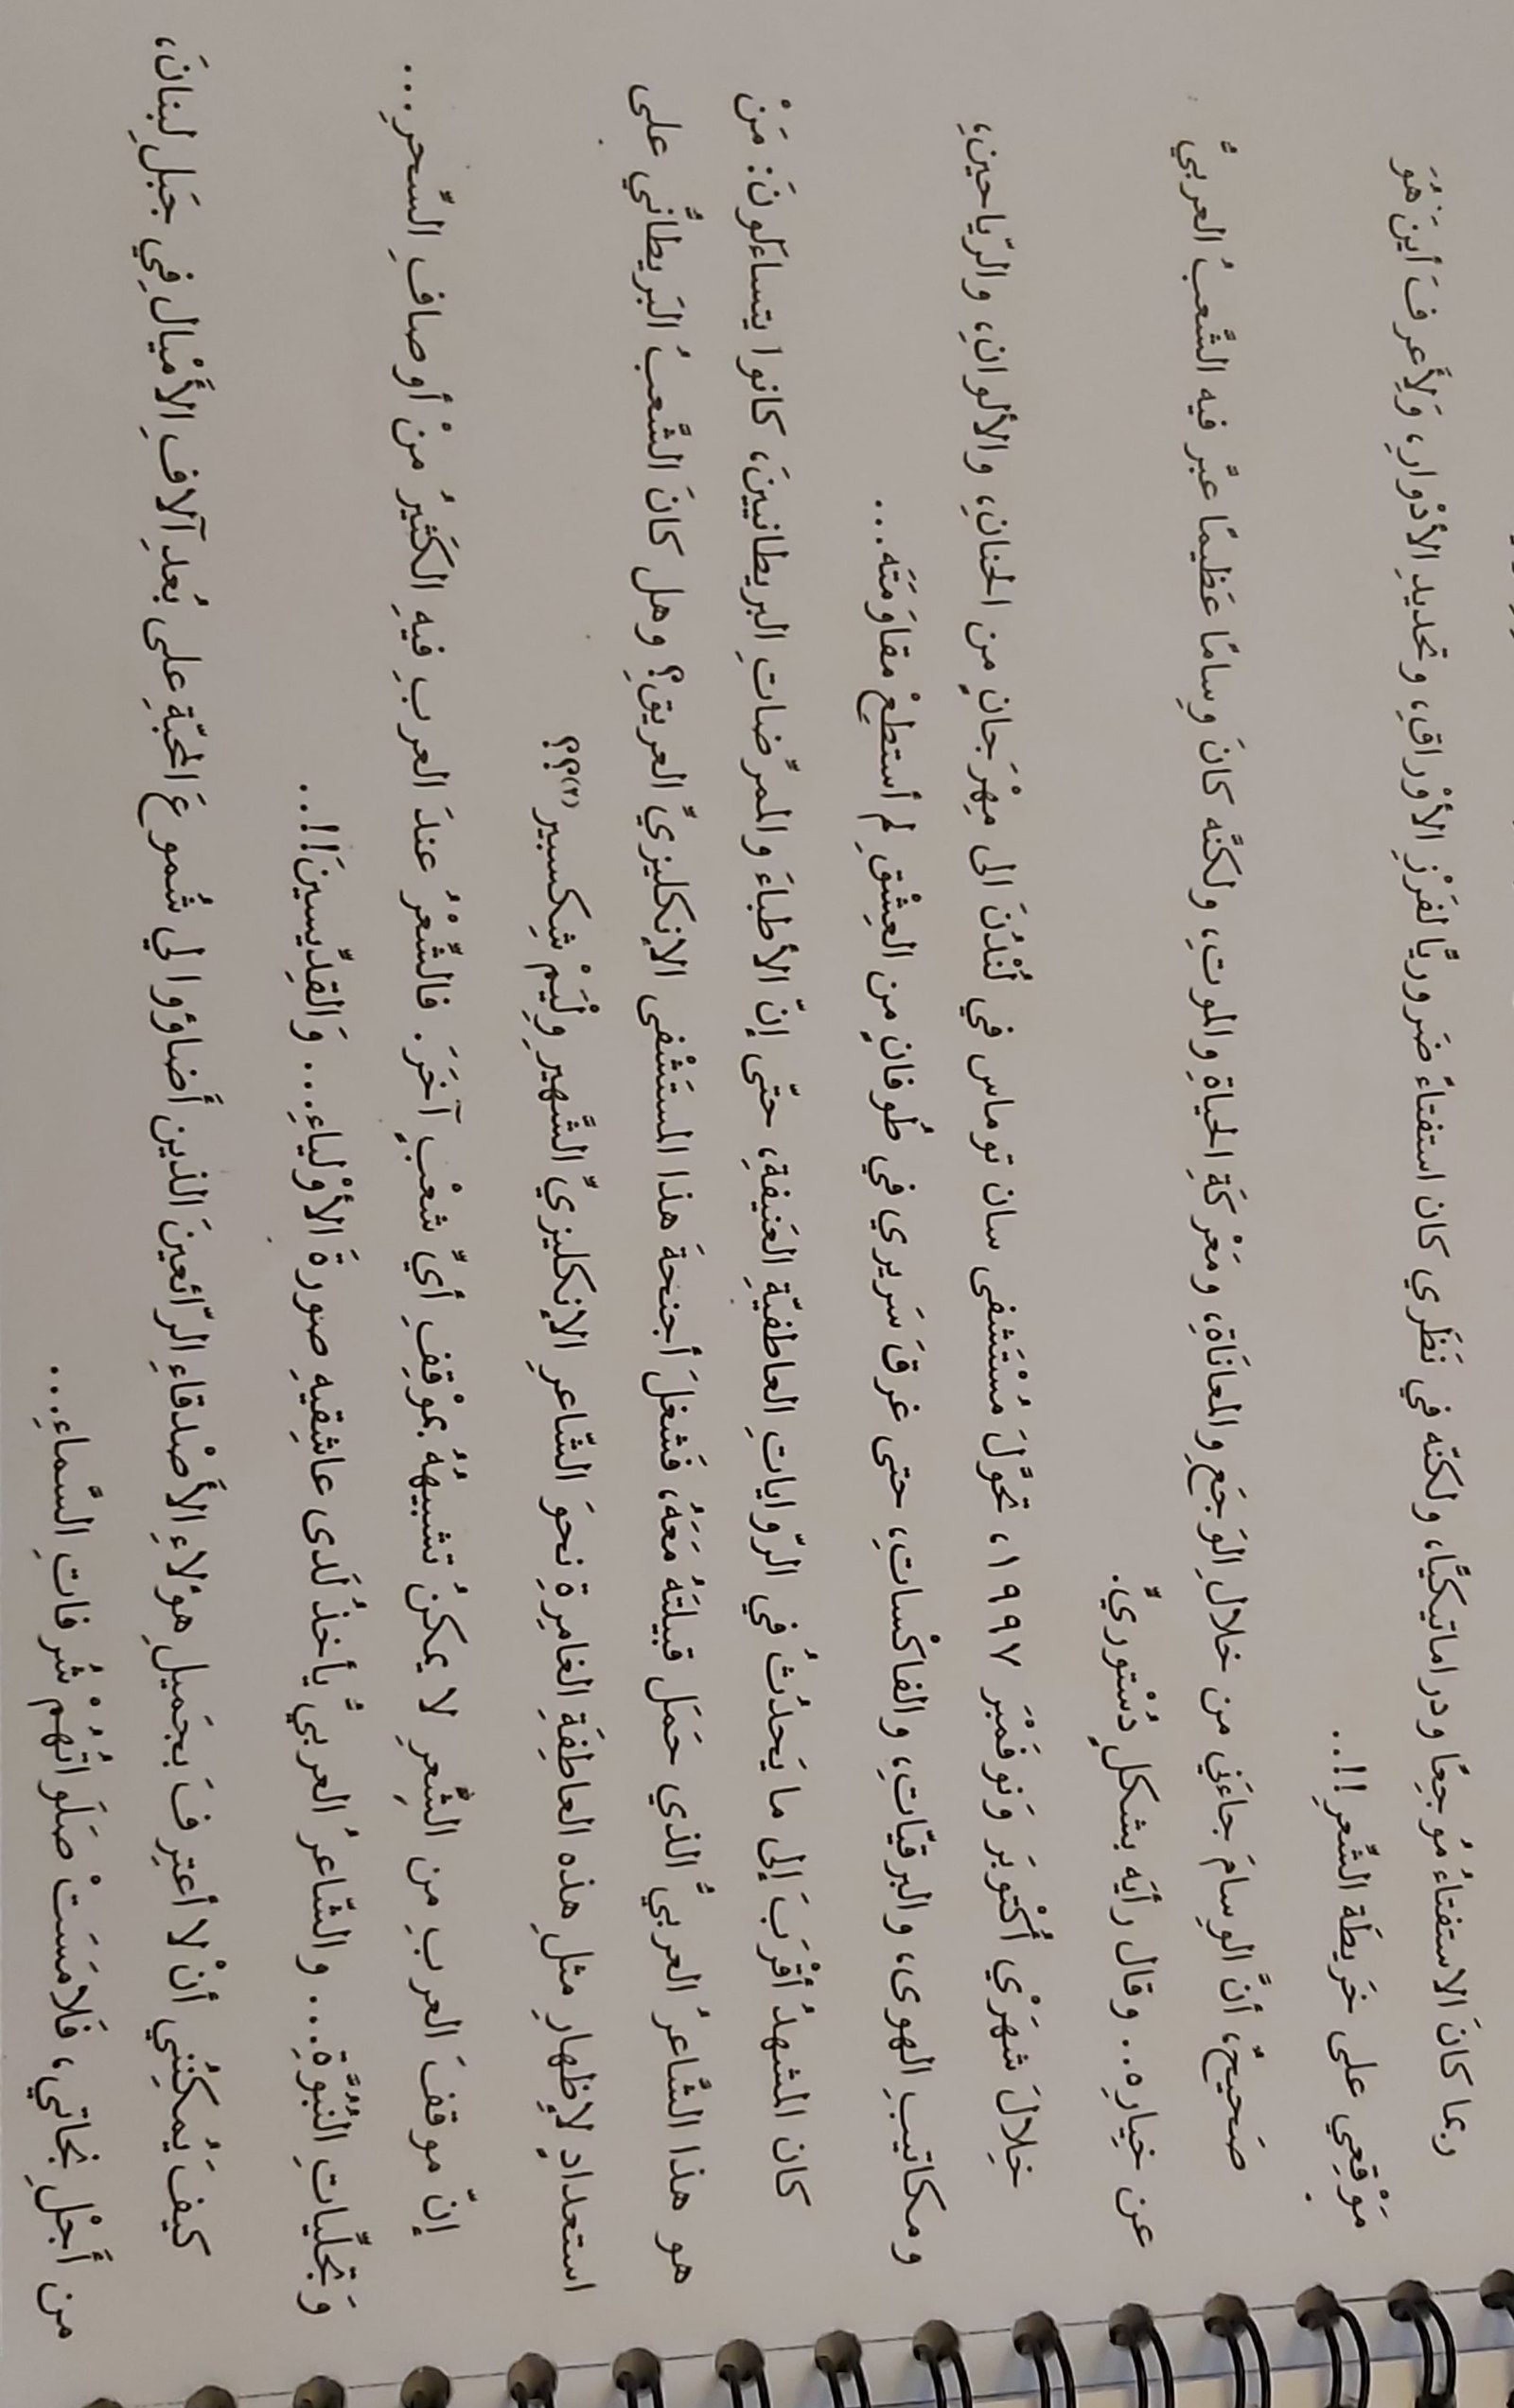 ربما كانَ الاستفتاءُ مُوجِعًا ودراماتيكيًّا، ولكنّه في نَظَري كان استفتاءً ضَروريًّا لفَرْزِ الأوْراقِ، وتحديدِ الأدْوارِ، وَلأَعرفَ أينَ هُوَ
مَوْقِعِي على خَريطَة الشَّعرِ!!..
صَحيحٌ، أنَّ الوِسامَ جاءَني من خلالِ الوَجَعِ والمعانَاةِ، ومَعْركَةِ الحياةِ والموتِ، ولكنَّه كانَ وِسامًا عَظيمًا عبَّر فيه الشَّعبُ العربيُّ
عن خِيارِه.. وقال رأيَه بشكلٍ دُسْتوريٍّ.
خِلالَ شهرَيْ أُكْتوبَر وَنوفَمْبَر ١٩٩٧، تحَوَّلَ مُسْتَشفى سان توماس في لُنْدُنَ الى مِهْرَجانٍ من الحنانِ، والألوانِ، والرّياحينِ،
ومكاتيبِ الهوى، والبرقيّاتِ، والفاكْساتِ، حتى غرقَ سَريري في طُوفانٍ من العِشْقِ لم أستطعْ مقاوَمَتَه...
كان المشهدُ أقْرَبَ إلى ما يَحدُثُ في الرّواياتِ العاطفيّةِ العَنيفةِ، حتّى إنّ الأطباءَ والممرِّضاتِ البريطانيينَ، كانوا يتساءَلونَ: مَنْ
هو هذا الشَّاعرُ العربيُّ الذي حَمَل قبيلتَهُ مَعَهُ، فَشغلَ أجنحةَ هذا المستَشْفى الإنكليزيِّ العريقِ؟ وهل كانَ الشَّعبُ البَريطانُّي على
استعدادٍ لإظهارِ مثلِ هذه العاطِفَةِ الغامِرةِ نحوَ الشّاعرِ الإنكليزيِّ الشَّهيرِ ولْيَمْ شِكسبير (٢)؟؟
إنّ موقفَ العربِ من الشَّعرِ لا يمكنُ تشبيهُهُ بموْقفِ أيِّ شعْبٍ آخَرَ. فالشِّعْرُ عندَ العربِ فيهِ الكَثيرُ منْ أوصافِ السِّحرِ...
وَتجلِّياتِ النُبُوَّةِ... والشّاعرُ العربيُّ يأخذُ لَدى عاشِقيهِ صورةَ الأوْلياءِ... وَالقِدِّيسينَ!!..
كيفَ يُمكِنُنِي أنْ لا أعترفَ بجَميلِ هؤلاءِ الأصْدقاءِ الرّائعينَ الذين أضاؤوا لي شُموعَ المحَبّةِ على بُعدِ آلافِ الأمْيالِ في جَبَلِ لبنانَ،
من أجْلِ نجاتي، فَلامَسَتْ صَلَواتُهُمْ شُرفاتِ السَّماءِ...